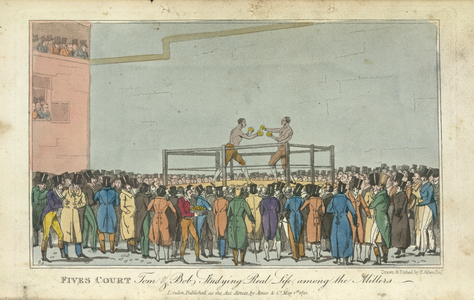 Drawn & Etched by H. Alken Esq.
FIVES COURT Tom & Bob, Studying Real Life, among the Millers
London, Published as the Act directs, by Jones & Co. May